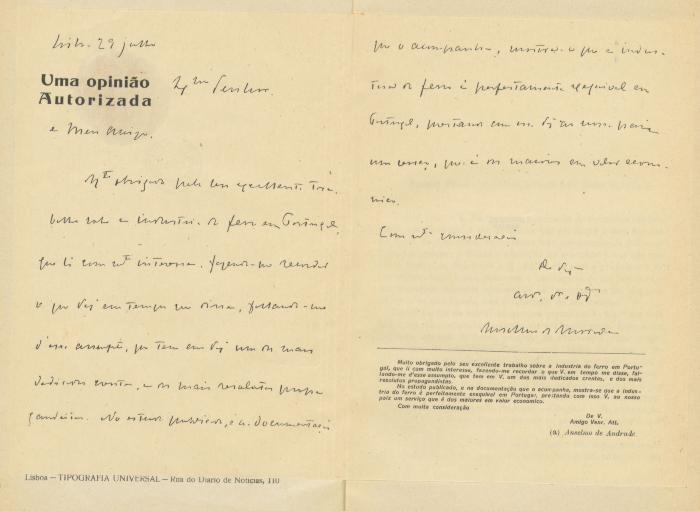 Lisb. 29 julho
Uma opinião
Autorizada
Senhor
e Meu Amigo.
Mto obrigado pelo seu excellente tra-
balho sobre a industria do ferro em Portugal,
que li com mto interesse, fazendo-me recordar
o que V. em tempo me disse, fallando-me
d'esse assumpto, que tem em V. um dos mais
dedicados crentes, e dos mais resolutos propa-
gandistas. No estudo publicado, e na documentação
que o acompanha, mostra-se que a indus-
tria do ferro é perfeitamente exequivel em
Portugal, prestando com isso V. ao nosso paiz
um serviço, que é dos maiores em valor econo-
mico.
Com mta consideração
De V.
Anselmo de Andrade
Muito obrigado pelo seu excellente trabalho sobre a industria do ferro em Portu-
gal, que li com muito interesse, fazendo-me recordar o que V. em tempo me disse, fal-
lando-me d'esse assumpto, que tem em V. um dos mais dedicados crentes, e dos mais
resolutos propagandistas.
No estudo publicado, e na documentação que o acompanha, mostra-se que a indus-
tria do ferro é perfeitamente exequivel em Portugal, prestando com isso V. ao nosso
paiz um serviço que é dos maiores em valor economico.
Com muita consideração
De V.
Amigo Venr. Att.
(a) Anselmo de Andrade.
Lisboa — TIPOGRAFIA UNIVERSAL — Rua do Diario de Noticias, 110